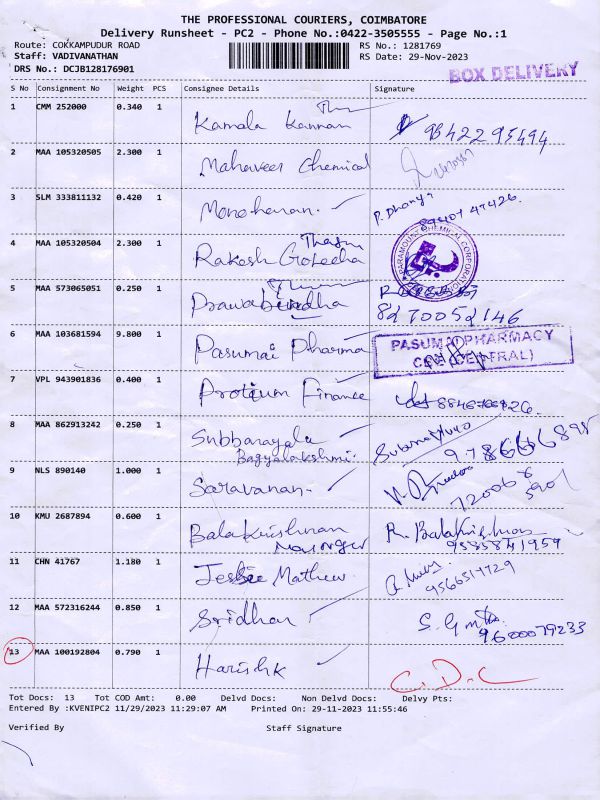 THE PROFESSIONAL COURIERS, COIMBATORE
Delivery Runsheet - PC2 - Phone No.:0422-3505555 - Page No.:1
Route: COKKAMPUDUR ROAD RS No.: 1281769
Staff: VADIVANATHAN RS Date: 29-Nov-2023
DRS No.: DCJB128176901
BOX DELIVERY
S No Consignment No Weight PCS Consignee Details Signature
1 CMM 252000 0.340 1 Kamala Kannan 9842295494
2 MAA 105320505 2.300 1 Mahaveer Chemical
3 SLM 333811132 0.420 1 Manoharan P. Dhanya
89407 47426
4 MAA 105320504 2.300 1 Rakesh Golecha PARAMOUNT CHEMICAL CORPORATION
5 MAA 573065051 0.250 1 8270052146
6 MAA 103681594 9.800 1 Pasumai Pharma PASUMAI PHARMACY
(CENTRAL)
7 VPL 943901836 0.400 1 Finance
8 MAA 862913242 0.250 1 Subbarayalu
Bagyalakshmi
9 NLS 890140 1.000 1 Saravanan
10 KMU 2687894 0.600 1 Balakrishnan R. Balakrishnan
9585841959
11 CHN 41767 1.180 1 Mathew 9566514729
12 MAA 572316244 0.850 1 Sridhar 9600079233
13 MAA 100192804 0.790 1 Harish K C.D.C
Tot Docs: 13 Tot COD Amt: 0.00 Delvd Docs: Non Delvd Docs: Delvy Pts:
Entered By :KVENIPC2 11/29/2023 11:29:07 AM Printed On: 29-11-2023 11:55:46
Verified By Staff Signature